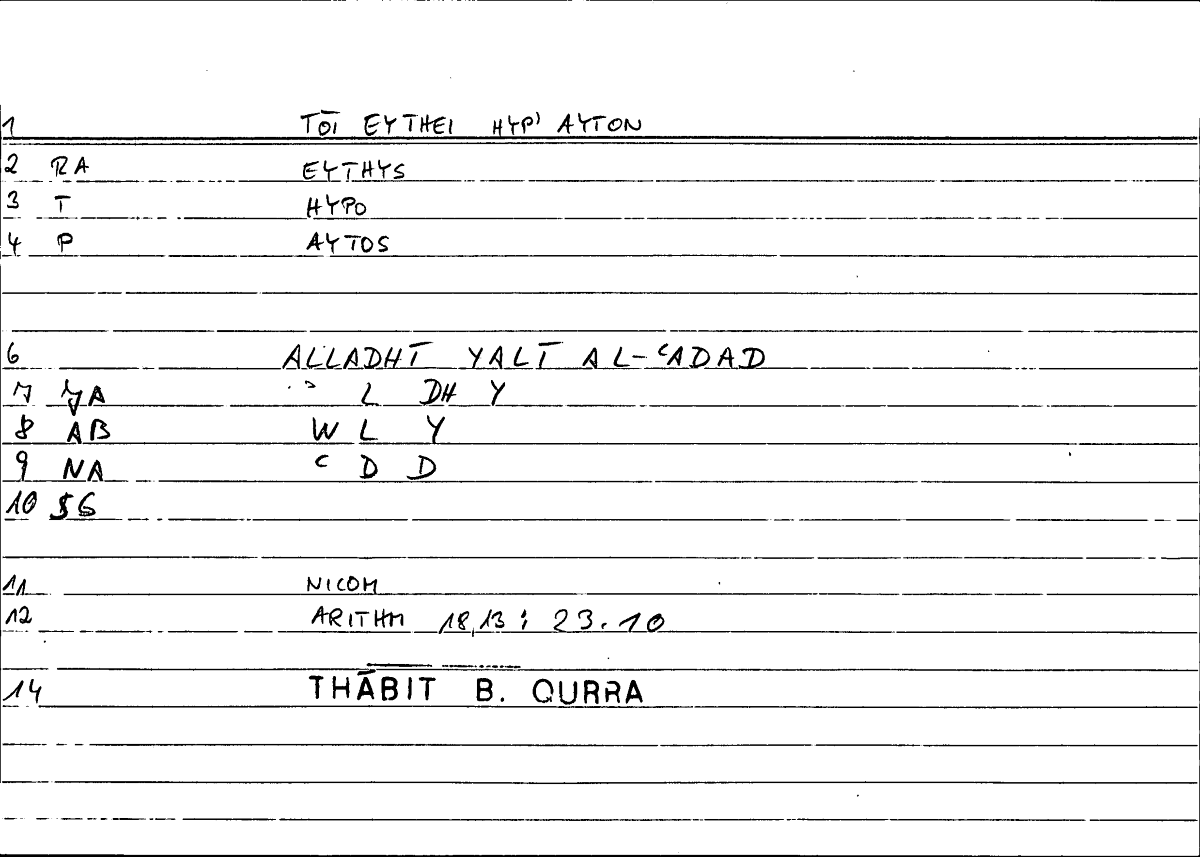 1 TŌI EYTHEI HYP' AYTON
2 RA EYTHYS
3 T HYPO
4 P AYTOS
6 ALLADHĪ YALĪ AL-ʿADAD
7 L DH Y
8 AB W L Y
9 NA ʿ D D
10 SG
11 NICOM
12 ARITHM 18,13; 23.10
14 THĀBIT B. QURRA